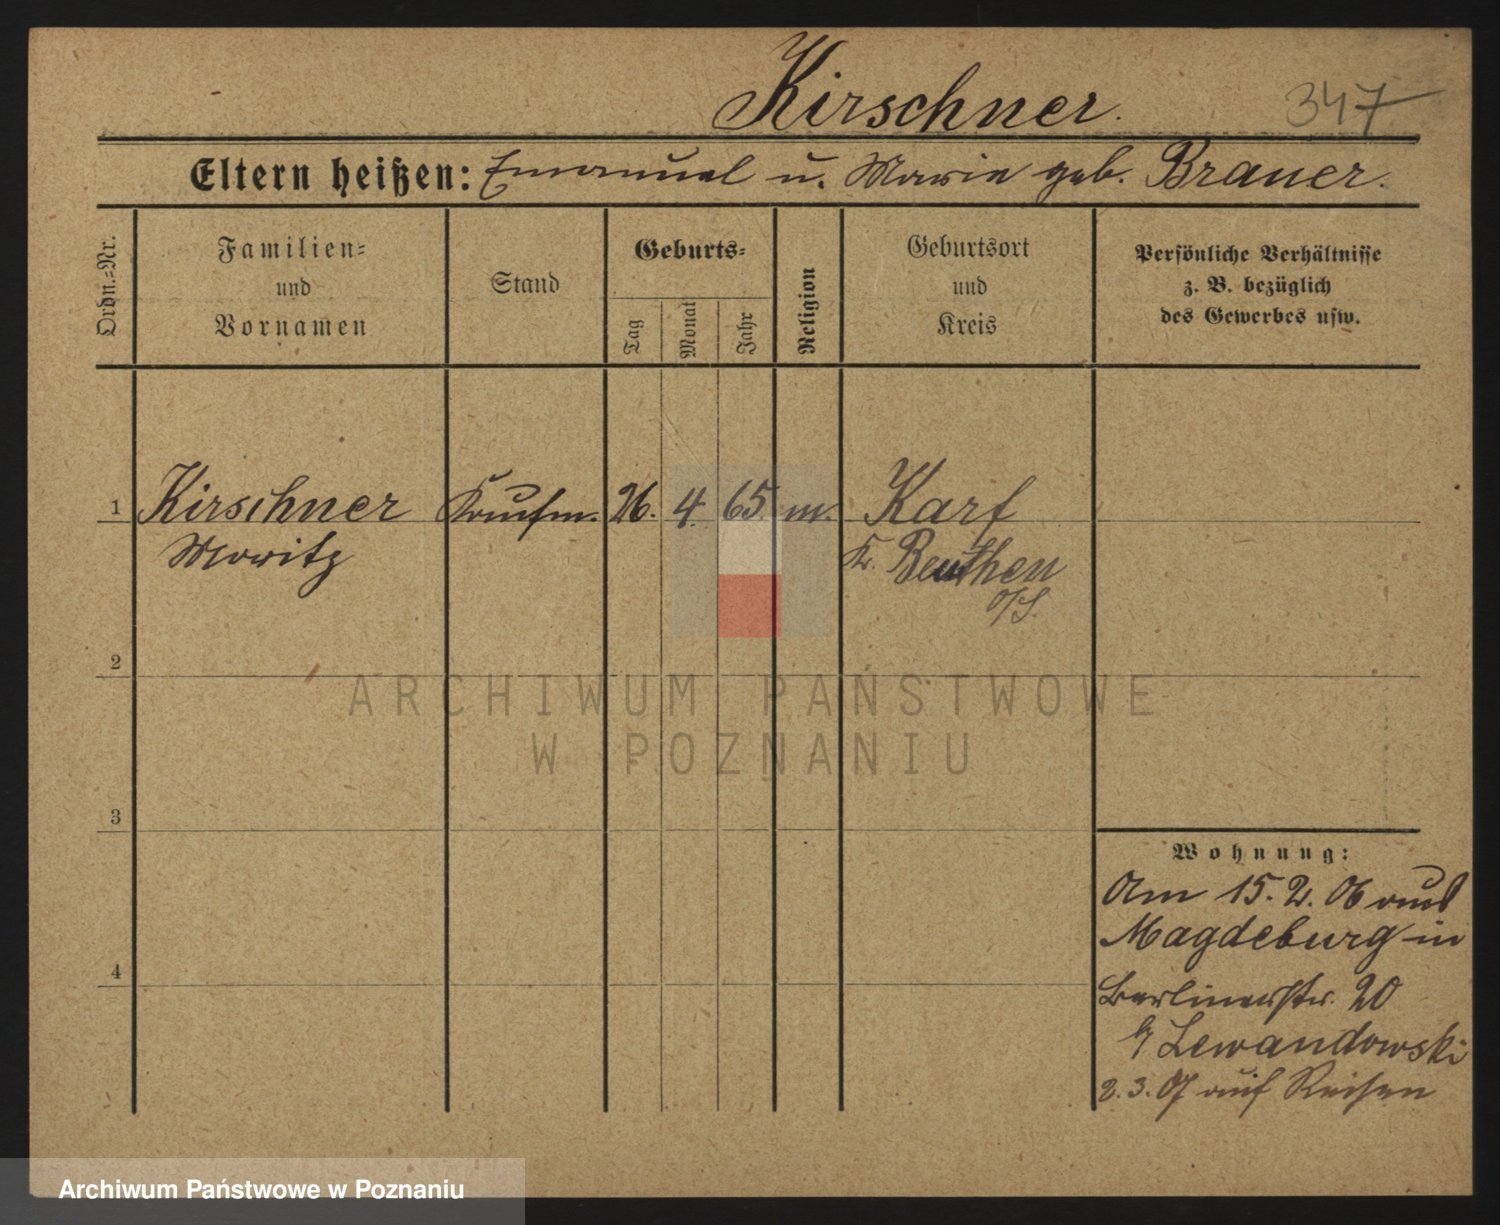 Kirschner.
347
Eltern heißen: Emanuel u. Marie geb. Brauer.
Ordn.=Nr.
Familien=
und
Vornamen
Stand
Geburts=
Tag
Monat
Jahr
Religion
Geburtsort
und
Kreis
Persönliche Verhältnisse
z. B. bezüglich
des Gewerbes usw.
1 Kirschner Kaufm. 26. 4. 65. m. Karf
Moritz Kr. Beuthen
o/S.
2
3
4
Wohnung:
Am 15. 2. 06 aus
Magdeburg in
Berlinerstr. 20
b/ Lewandowski
2. 3. 07 auf Reisen
ARCHIWUM PAŃSTWOWE
W POZNANIU
Archiwum Państwowe w Poznaniu